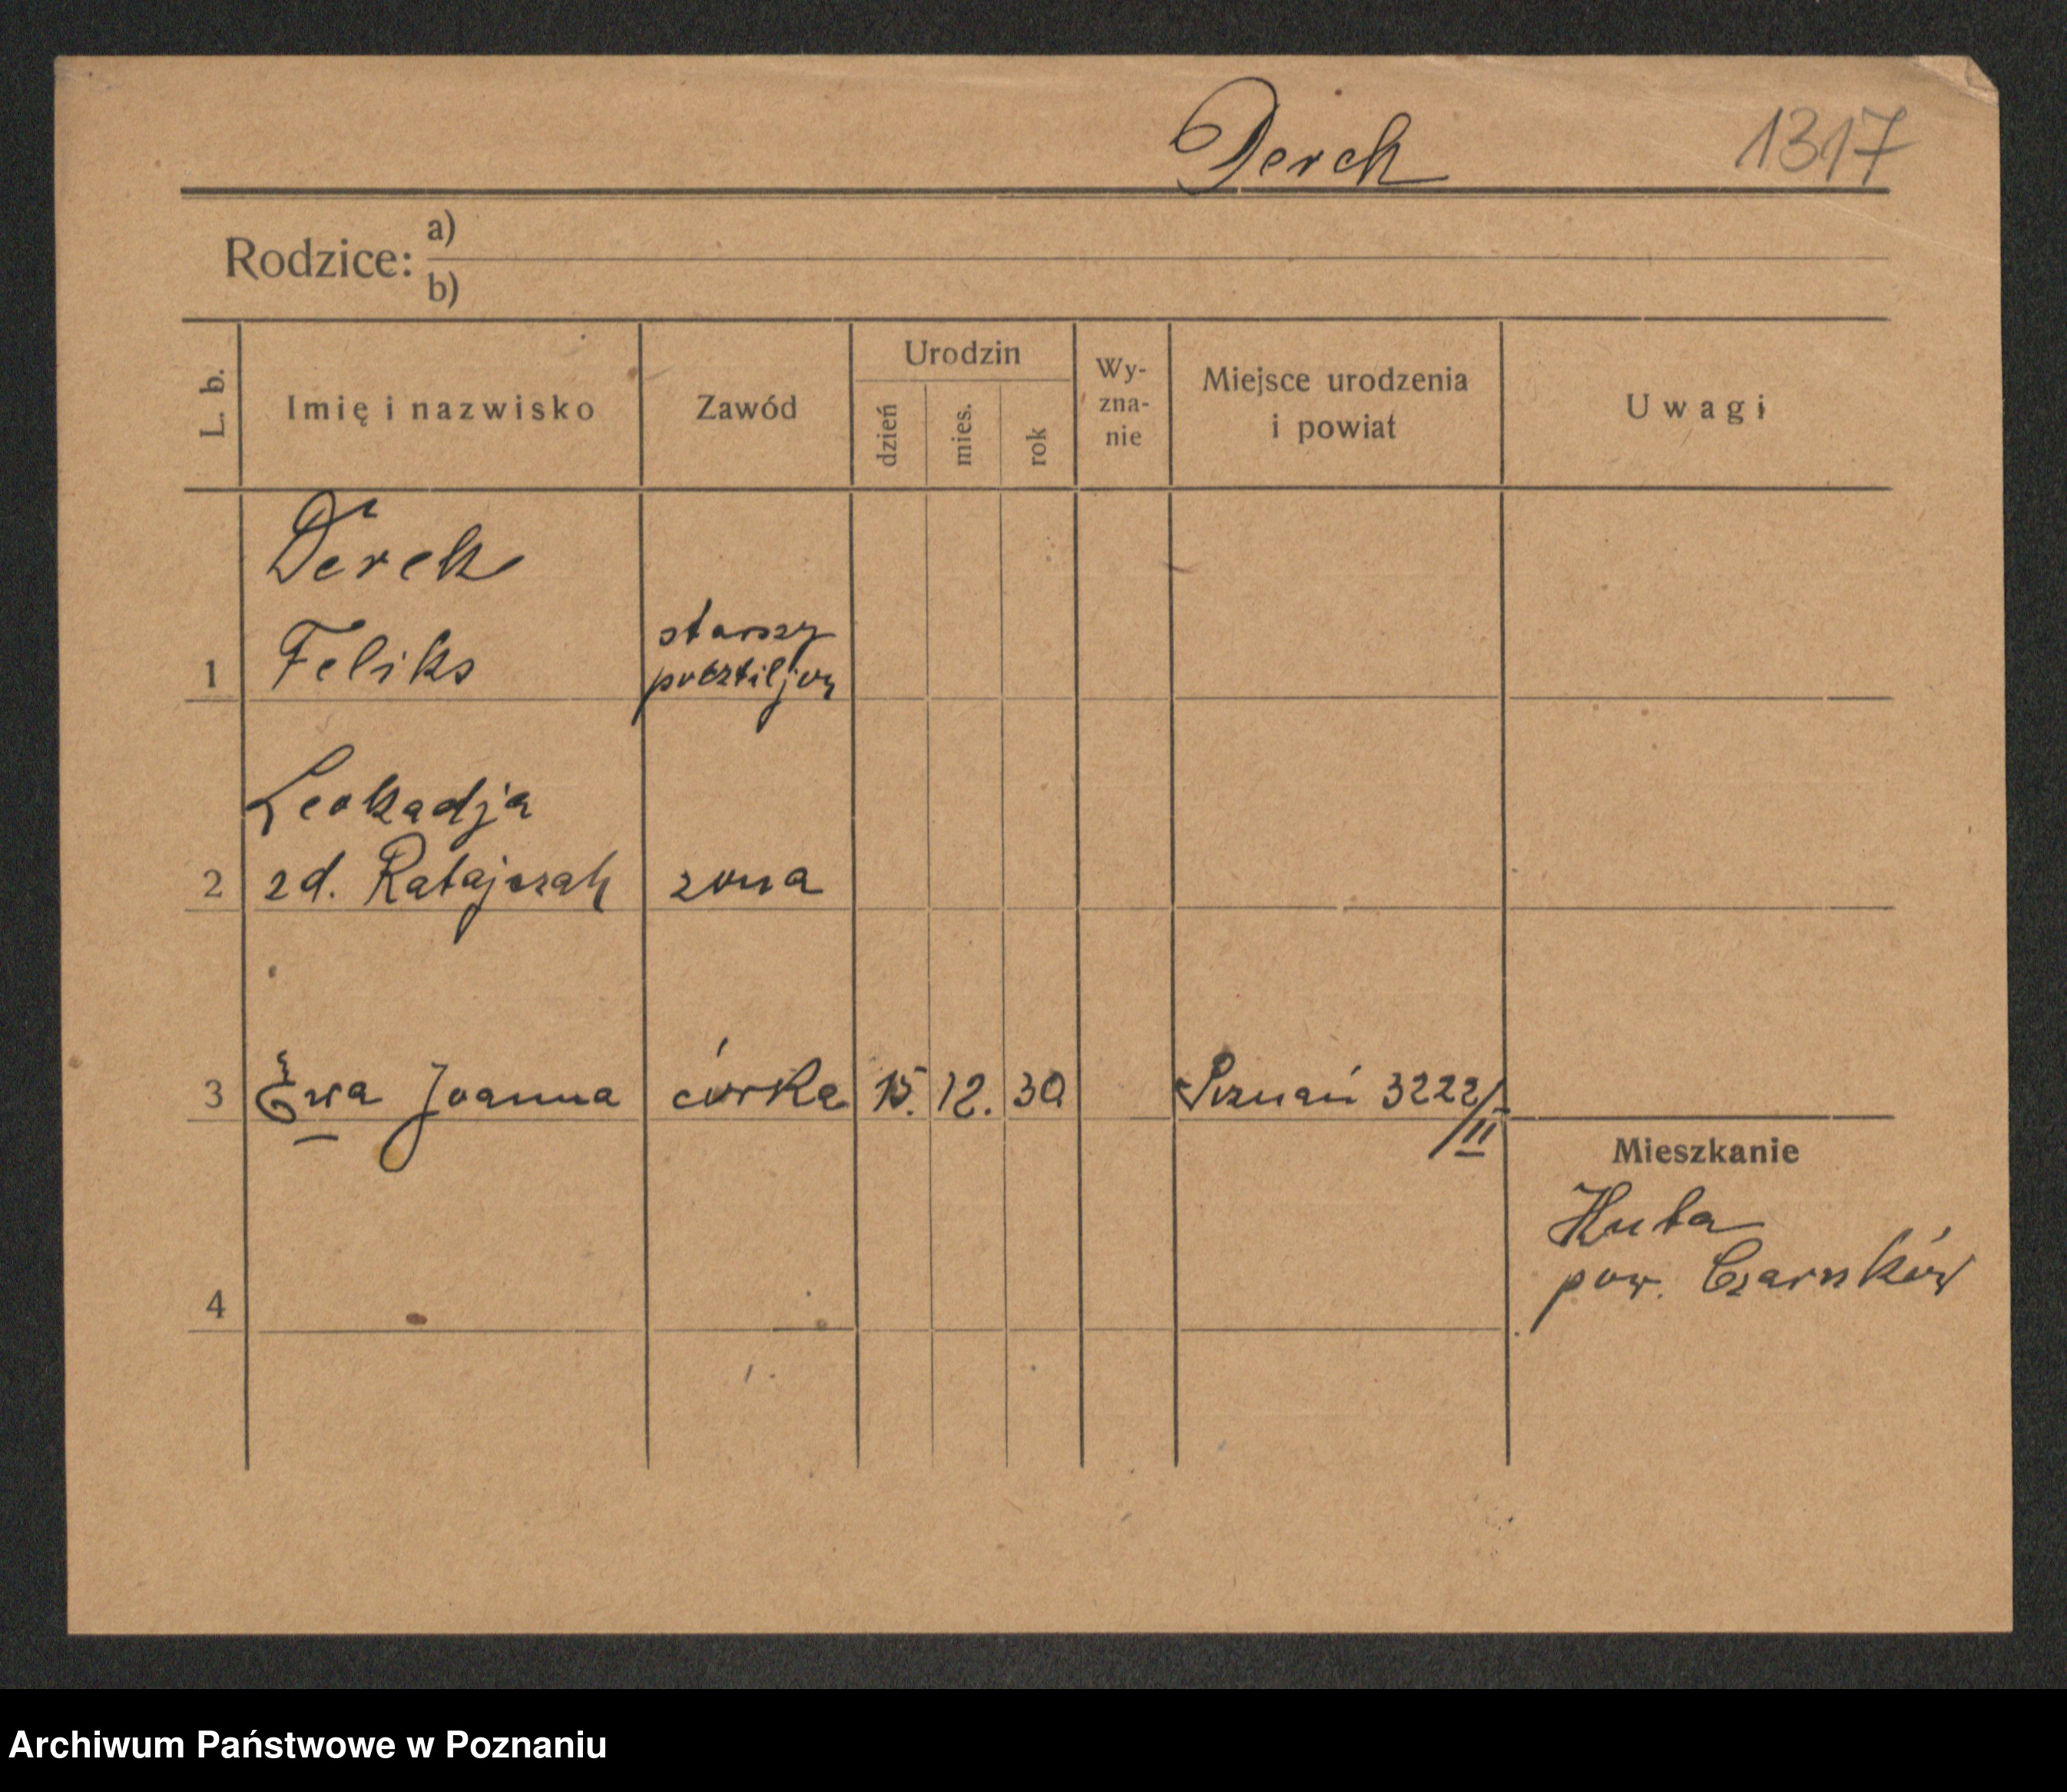 Derek
1317
Rodzice:
a)
b)
L. b.
Imię i nazwisko
Zawód
Urodzin
dzień
mies.
rok
Wy-
zna-
nie
Miejsce urodzenia
i powiat
Uwagi
Derek
1 Feliks
starszy
pocztiljon
Leokadja
2 zd. Ratajczak zona
3 Ewa Joanna córka 15. 12. 30 Poznań 3222/II
Mieszkanie
Huta
pow. Czarnków
4
Archiwum Państwowe w Poznaniu